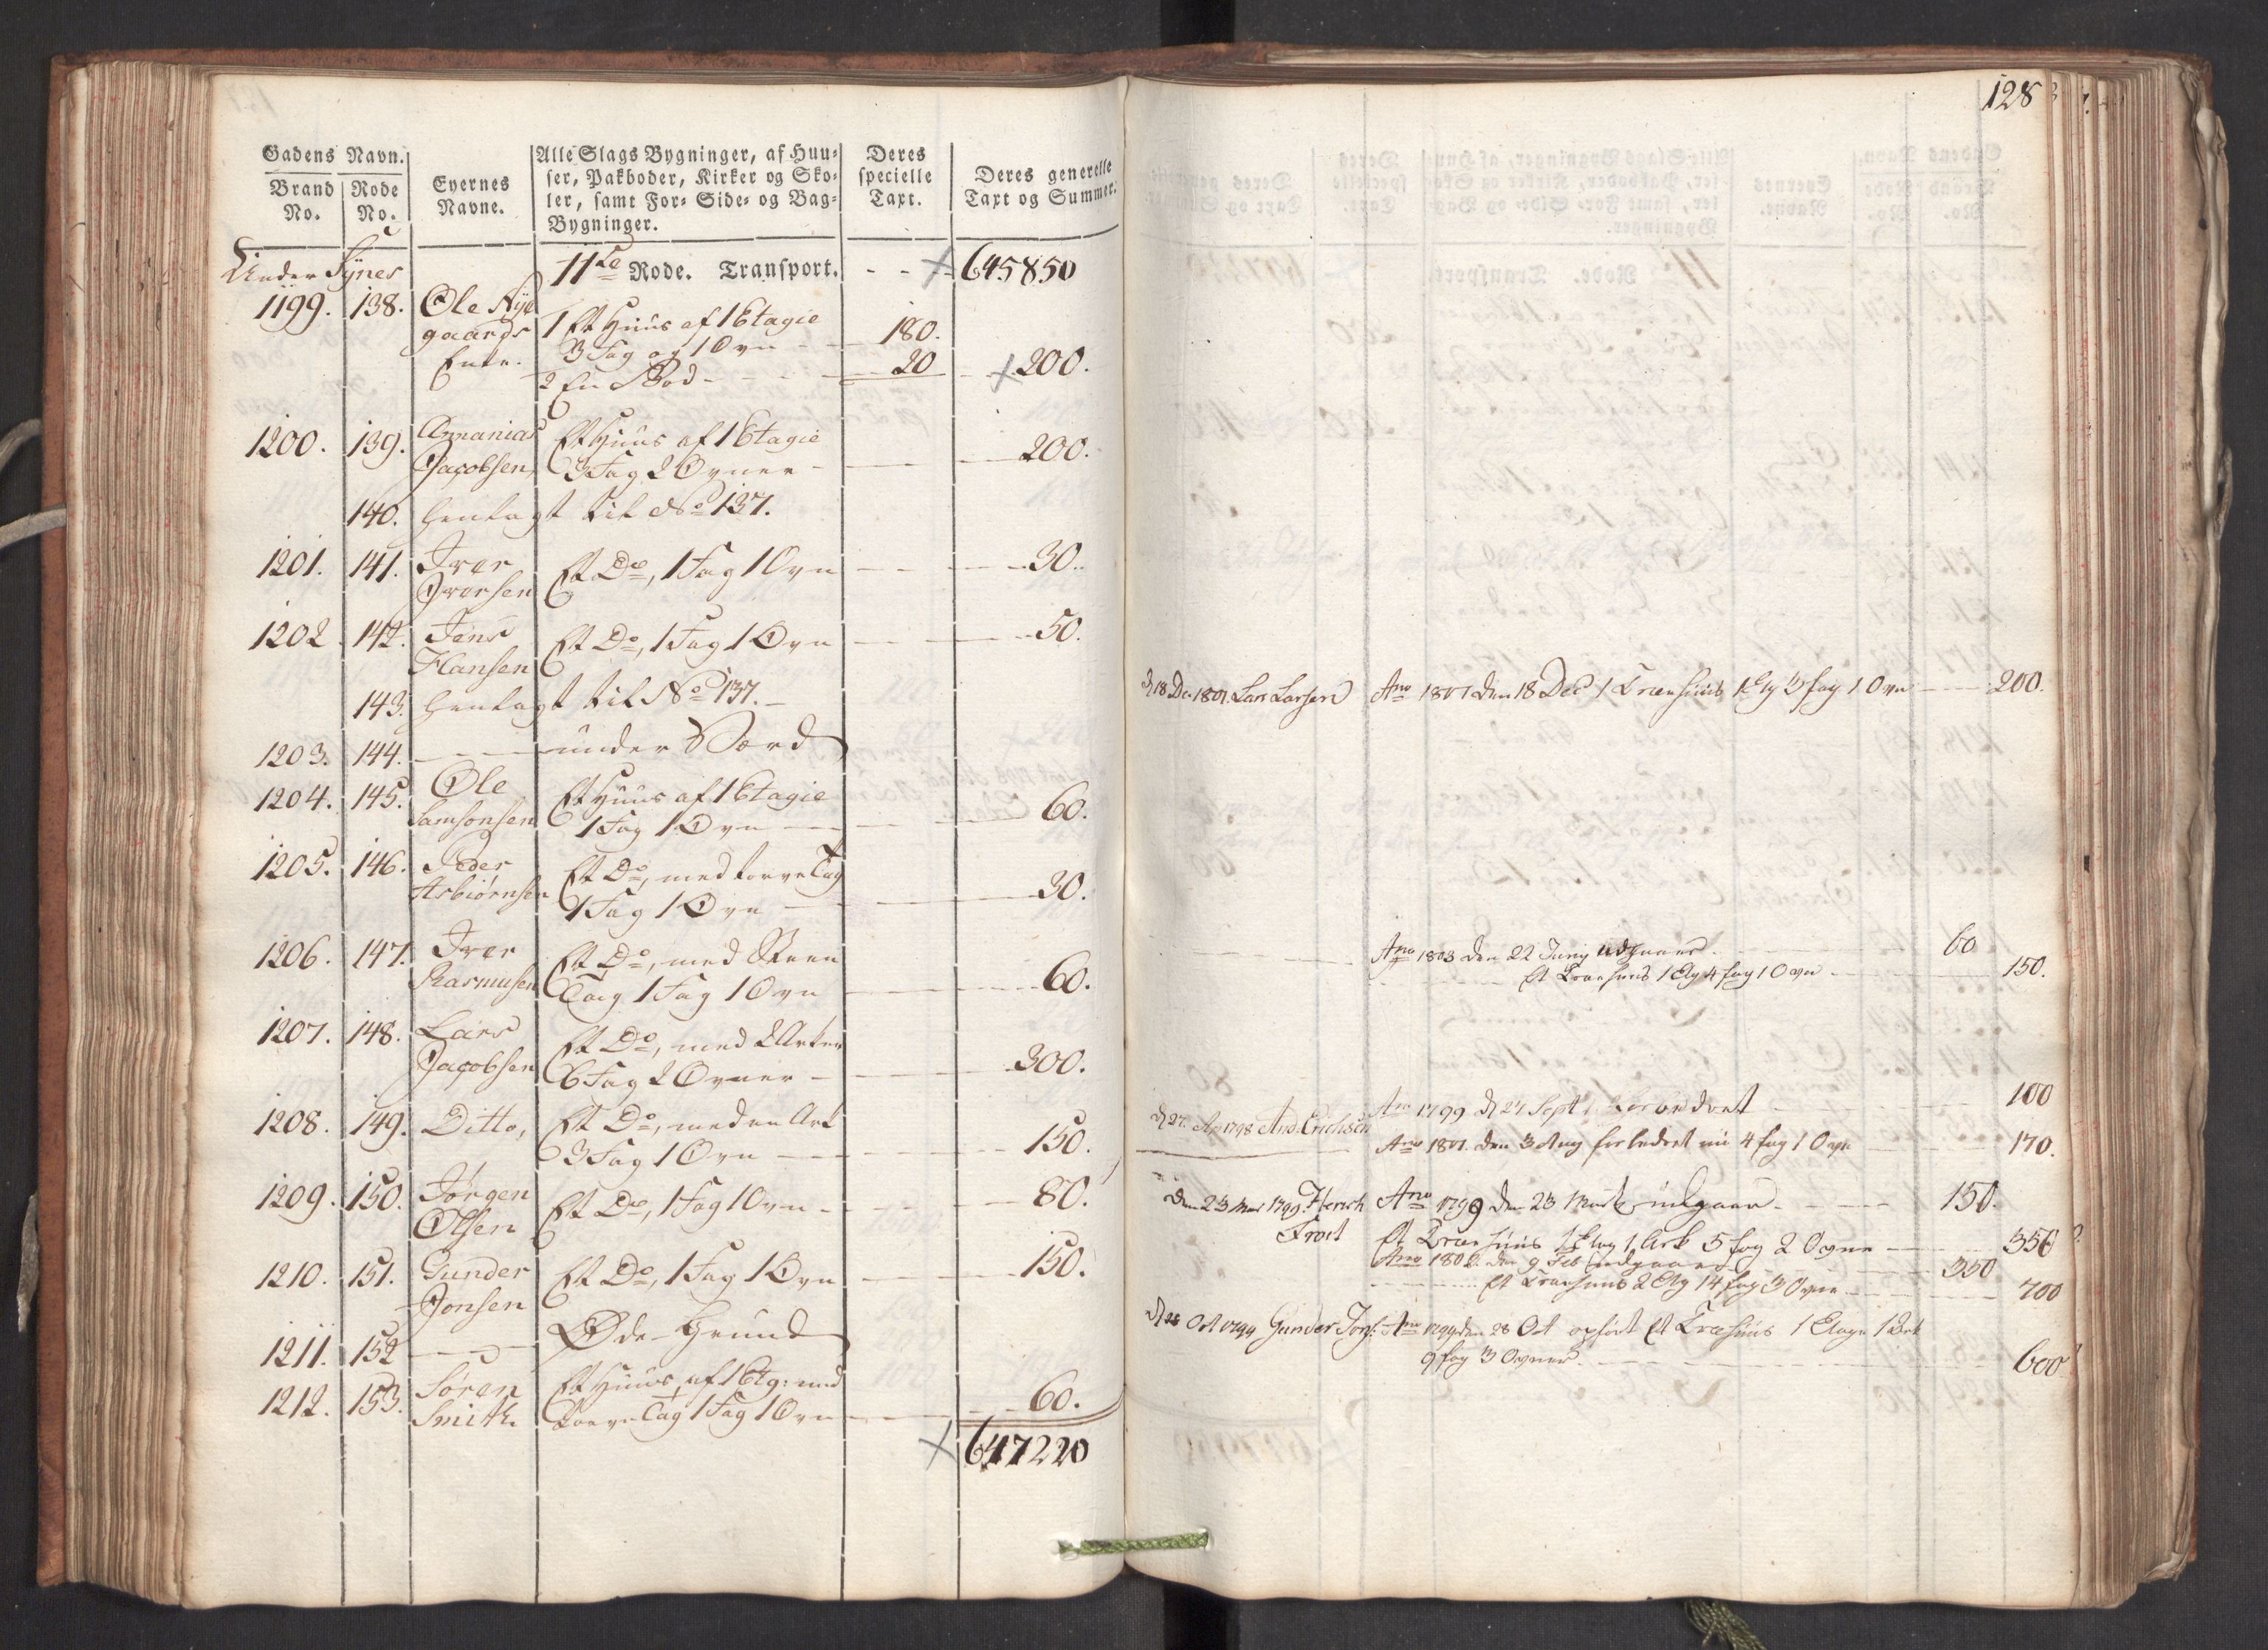 128
Gadens Navn.
Brand No.
Rode No.
Eyernes Navne.
Alle Slags Bygninger, af Huu-
ser, Pakboder, Kirker og Sko-
ler, samt For- Side- og Bag-
Bygninger.
Deres specielle Taxt.
Deres generelle Taxt og Summer.
Under Synes 11te Rode. Transport. 645850
1199. 138. Ole Nye 1 Et Huus af 1 Etagie
gaards 3 Fag og 1 Ovn 180.
Enke. 2 En Bod 20 200.
1200. 139. Ananias Et Huus af 1 Etagie
Jacobsen, 3 Fag 2 Ovner 200.
140. henlagt til No 137.
1201. 141. Iver Et Do, 1 Fag 1 Ovn 30.
Iversen
1202. 142. Jens Et Do, 1 Fag 1 Ovn 50.
Hansen
143. henlagt til No 137.
1203. 144. under Værd
1204. 145. Ole Et Huus af 1 Etagie
Samsonsen 1 Fag 1 Ovn 60.
1205. 146. Peder Et Do, med torve Tag
Asbiørnsen 1 Fag 1 Ovn 30.
1206. 147. Iver Et Do, med Steen
Rasmusen Tag 1 Fag 1 Ovn 60.
1207. 148. Lars Et Do, med 2 Arker
Jacobsen 6 Fag 2 Ovner 300.
1208. 149. Ditto, Et Do, med en Ark
3 Fag 1 Ovn 150.
1209. 150. Jørgen Et Do, 1 Fag 1 Ovn 80.
Olsen
1210. 151. Gunder Et Do, 1 Fag 1 Ovn 150.
Jonsen
1211. 152 Øde Grund
1212. 153. Søren Et Huus af 1 Etg: med
Smith torve Tag 1 Fag 1 Ovn 60.
647220
d 18 Dec 1801. Lars Larsen Ano 1801 den 18 Dec 1 Træehuus 1 Etg 3 fag 1 Ovn 200.
Ano 1803 den 22 Juny udgaaer 60
Et Træehuus 1 Etg 4 fag 1 Ovn 150.
d 27. 1798 And: Erichsen Ano 1799 d 27 Sept 100
Ano 1801. den 3 Aug forbedret nu 4 fag 1 Ovn 170.
den 23 Mar 1799 Ano 1799 den 23 Marti udgaaer 150.
Frost Et Træehuus 1 Etag 1 Ark 5 fag 2 Ovne 350
den 9 Feb udgaaer 350
Et Træehuus 2 Etg 14 fag 3 Ovne 700
d 28 Oct 1799 Gunder Ano 1799 den 28 Oct opført Et Træhuus 1 Etage 1 Ark
9 fag 3 Ovner 600